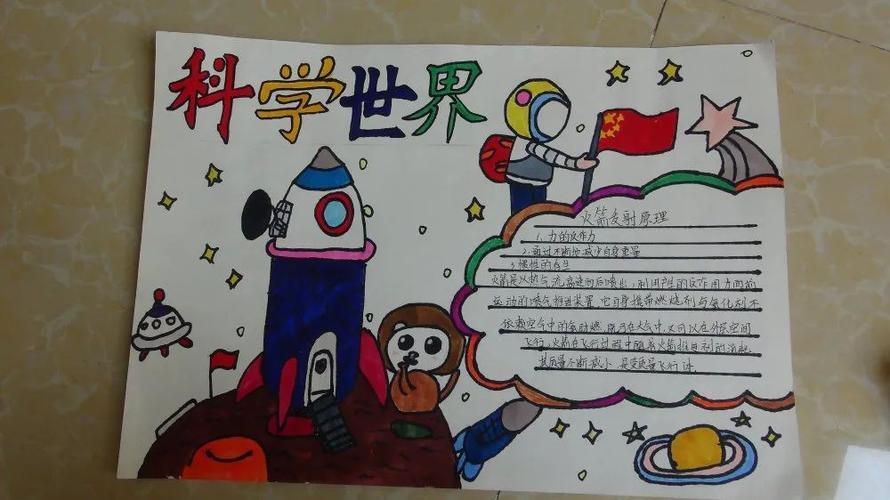 科学世界
火箭发射原理
1、力的反作力
2.通过不断地减少自身重量
3.惯性的存生
火箭是以热气流高速向后喷出,利用产生的反作用力向前
运动的喷气推进装置,它自身携带燃烧剂与氧化剂不
依赖空气中的氧助燃,既可在大气中,又可以在外层空间
飞行,火箭在飞行过程中随着火箭推进剂的消耗
其质量不断减小,是变质量飞行